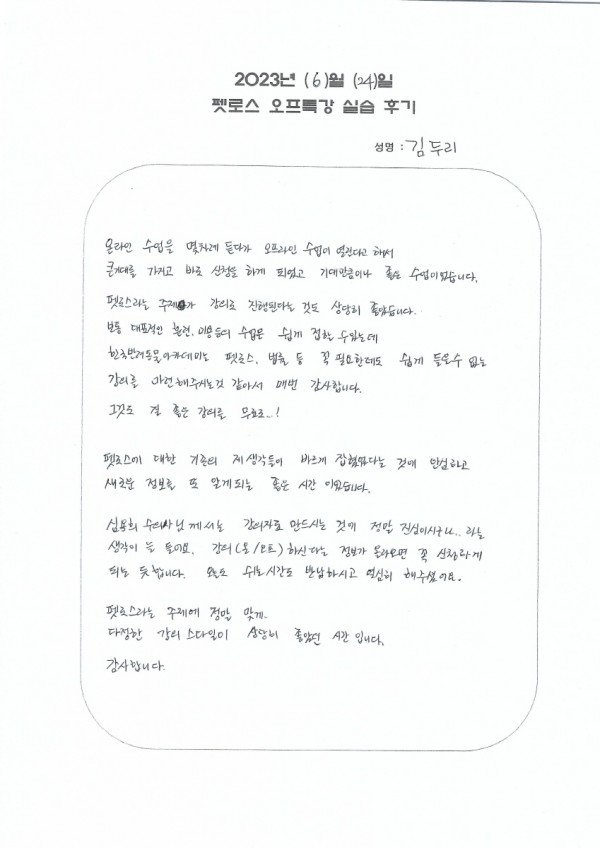 2023년 (6)월 (24)일
펫로스 오프특강 실습 후기
성명 : 김두리
온라인 수업을 몇차례 듣다가 오프라인 수업이 열린다고 해서
큰기대를 가지고 바로 신청을 하게 되었고 기대만큼이나 좋은 수업이었습니다.
펫로스라는 주제가 강의로 진행된다는 것도 상당히 좋았습니다.
보통 대표적인 훈련, 미용등의 수업은 쉽게 접할 수있는데
한국반려동물아카데미는 펫로스, 법률 등 꼭 필요한데도 쉽게 들을수 없는
강의를 마련해주시는것 같아서 매번 감사합니다.
그것도 질 좋은 강의를 무료로..!
펫로스에 대한 기존의 제생각들이 바르게 잡혔었다는 것에 안심하고
새로운 정보를 또 알게되는 좋은 시간 이었습니다.
심용희 수의사님께서는 강의자료 만드시는 것에 정말 진심이시구나.. 라는
생각이 늘 들어요. 강의(온/오프) 하신다는 정보가 올라오면 꼭 신청하게
되는 듯합니다. 오늘도 쉬는시간도 반납하시고 열심히 해주셨어요.
펫로스라는 주제에 정말 맞게..
다정한 강의 스타일이 상당히 좋았던 시간 입니다.
감사합니다.